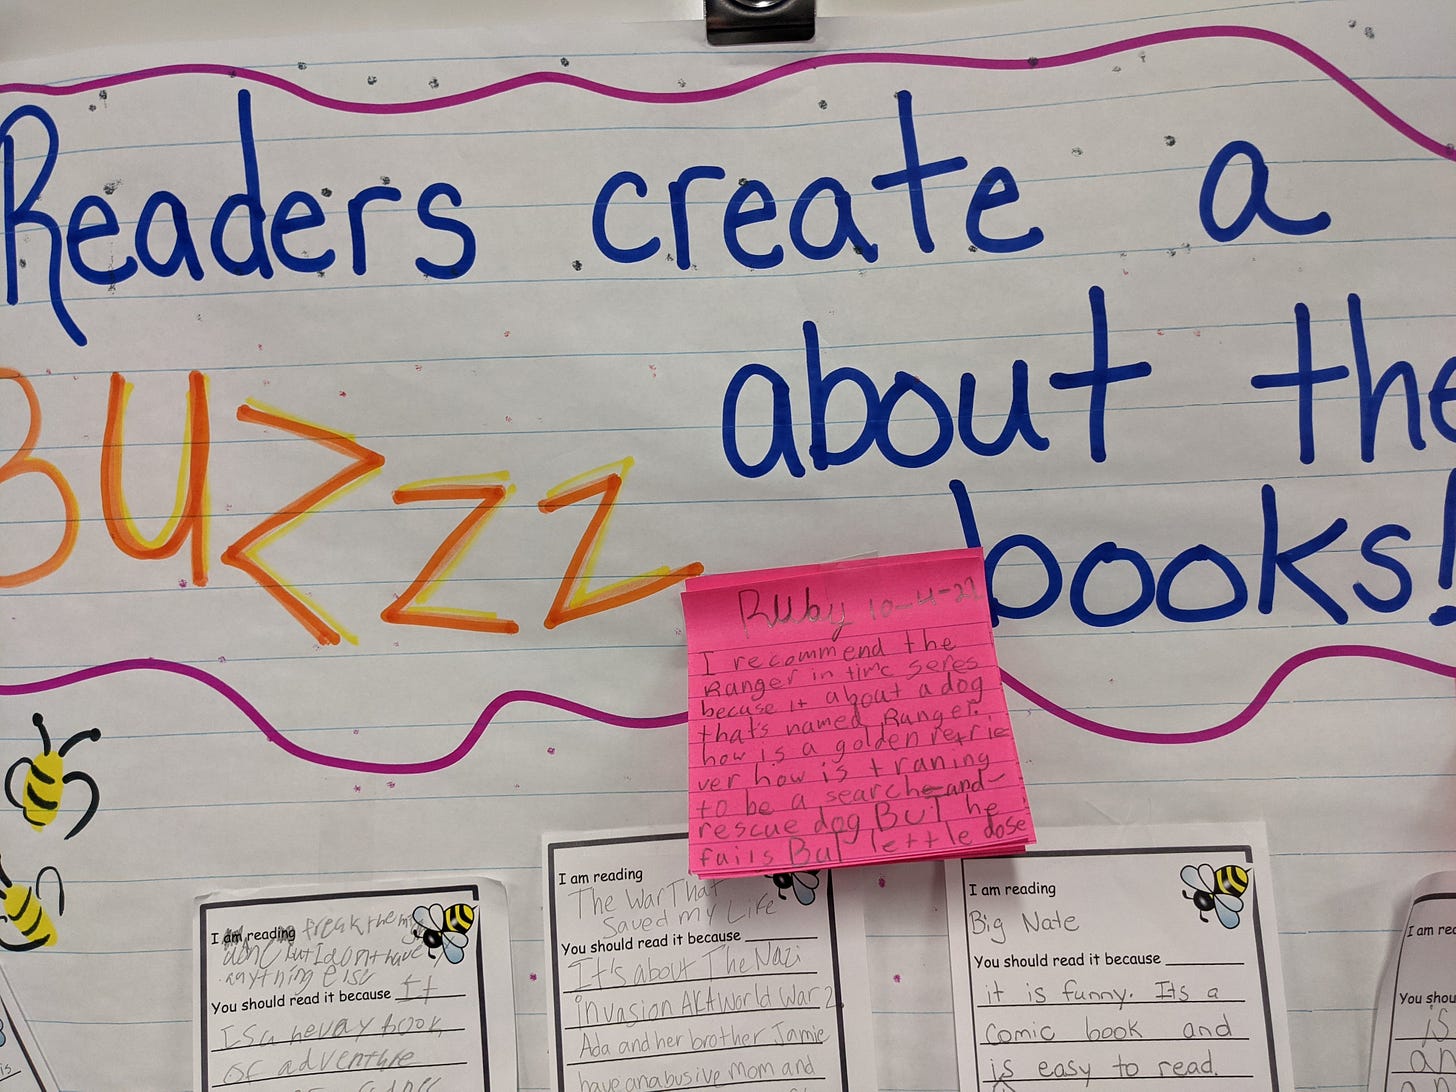 Readers create a
BUZzz about the
books!
Ruby 10-4-22
I recommend the
Ranger in time seres
becuse it about a dog
that's named Ranger.
how is a golden retrie
ver how is traning
to be a search-and-
rescue dog BuT he
fails But lettle dose
I am reading
freak the
but I dont have
anything else
You should read it because It
Is a book
of adventure
I am reading
The War That
Saved my Life
You should read it because
It's about The Nazi
invasion AKA World War 2
Ada and her brother Jamie
have an abusive mom and
I am reading
Big Nate
You should read it because
it is funny. Its a
comic book and
is easy to read.
I am rea
You shou
is
an
is